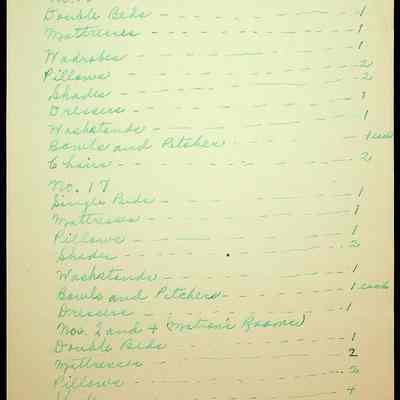 Double Beds - - - - - - - - 1
Mattresses - - - - - - - - 1
Wadrobes - - - - - - - - 1
Pillows - - - - - - - - 2
Shades - - - - - - - - 2
Dressers - - - - - - - - 1
Washstands - - - - - - - - 1
Bowls and Pitcher - - - - - 1 each
Chairs - - - - - - - - 2
No. 17
Single Beds - - - - - - - - 1
Mattresses - - - - - - - - 1
Pillows - - - - - - - - 1
Shades - - - - - - - - 2
Washstands - - - - - - - - 1
Bowls and Pitchers - - - - - 1 each
Dressers - - - - - - - - 1
Nos. 2 and 4 (Matron's Rooms)
Double Beds - - - - - - - - 1
Mattresses - - - - - - - - 2
Pillows - - - - - - - - 2
- - - - - - - - 4